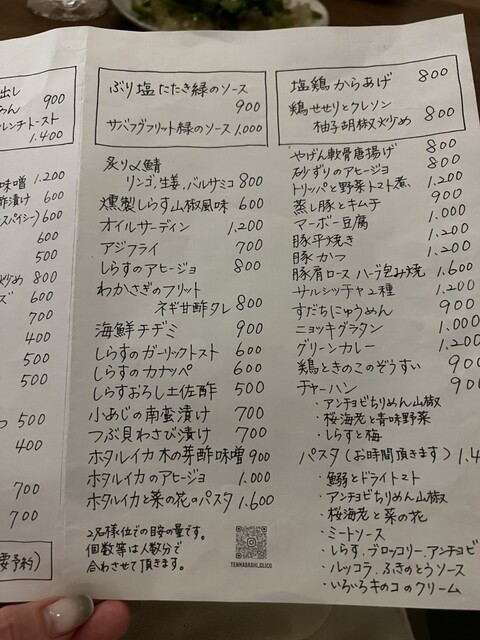 出し
900
レンチトースト
1.400
味噌 1.200
酢漬け 600
スパイシー) 600
600
500
炒め 800
ズ 600
700
400
500
500
500
400
700
700
要予約)
ぶり塩たたき緑のソース
900
サバフグフリット緑のソース 1.000
炙り〆鯖
リンゴ,生姜,バルサミコ 800
燻製しらす山椒風味 600
オイルサーディン 1.200
アジフライ 700
しらすのアヒージョ 800
わかさぎのフリット
ネギ甘酢タレ 800
海鮮チヂミ 900
しらすのガーリックトスト 600
しらすのカナッペ 600
しらすおろし土佐酢 500
小あじの南蛮漬け 700
つぶ貝わさび漬け 700
ホタルイカ木の芽酢味噌 900
ホタルイカのアヒージョ 1.000
ホタルイカと菜の花のパスタ 1.600
2名様位での目安の量です。
個数等は人数分で
合わさせて頂きます。
TENMABASHI_GLICO
塩鶏からあげ 800
鶏せせりとクレソン
柚子胡椒炒め 800
やげん軟骨唐揚げ 800
砂ずりのアヒージョ 800
トリッパと野菜トマト煮、 1.200
蒸し豚とキムチ 900
マーボー豆腐 1.000
豚平焼き 1.200
豚かつ 1.200
豚肩ロース ハーブ包み焼 1.600
サルシッチャ2種 1.200
すだちにゅうめん 900
ニョッキグラタン 1.000
グリーンカレー 1.200
鶏ときのこのぞうすい 900
チャーハン 900
・アンチョビちりめん山椒
・桜海老と青味野菜
・しらすと梅
パスタ(お時間頂きます) 1.4
・鰯とドライトマト
・アンチョビちりめん山椒
・桜海老と菜の花
・ミートソース
・しらす、ブロッコリー、アンチョビ
・ルッコラ、ふきのとうソース
・いろいろキノコのクリーム